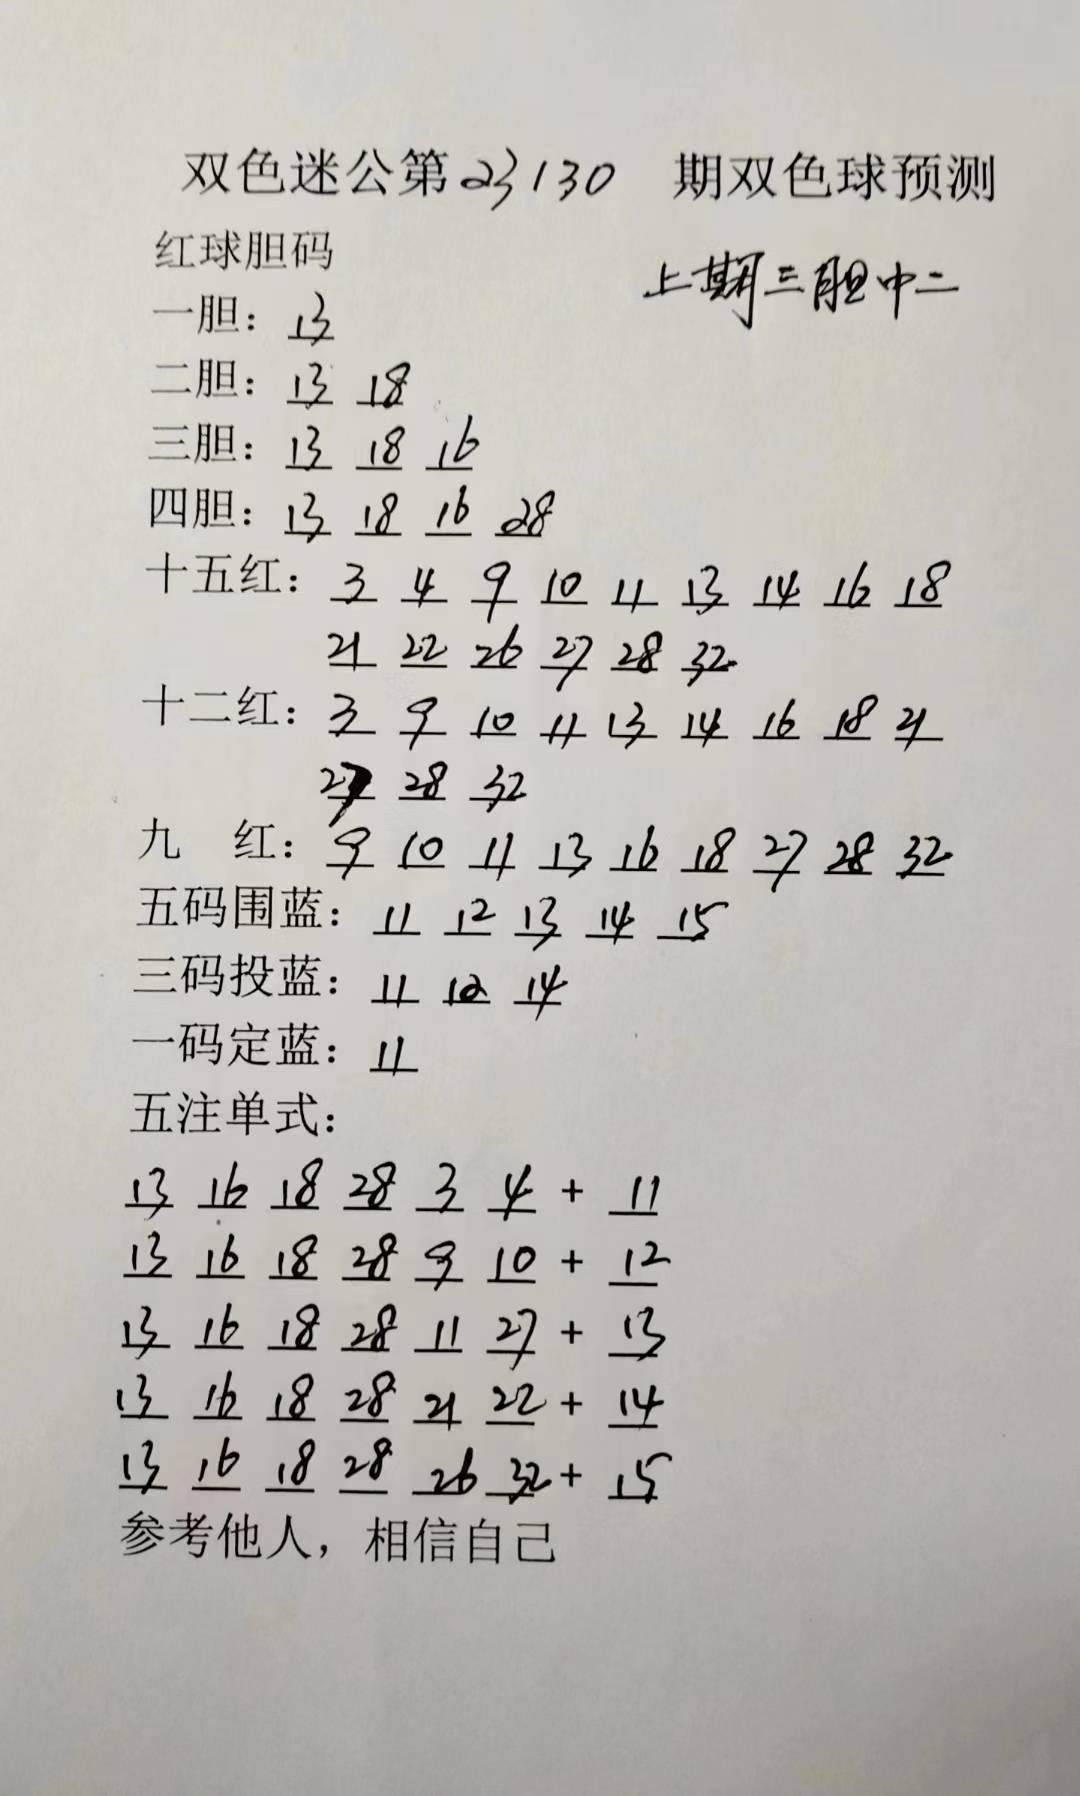 双色迷公第23130 期双色球预测
红球胆码
上期三胆中二
一胆：13
二胆：13 18
三胆：13 18 16
四胆：13 18 16 28
十五红：3 4 9 10 11 13 14 16 18
21 22 26 27 28 32
十二红：3 9 10 11 13 14 16 18 21
27 28 32
九 红：9 10 11 13 16 18 27 28 32
五码围蓝：11 12 13 14 15
三码投蓝：11 12 14
一码定蓝：11
五注单式：
13 16 18 28 3 4 + 11
13 16 18 28 9 10 + 12
13 16 18 28 11 27 + 13
13 16 18 28 21 22 + 14
13 16 18 28 26 32 + 15
参考他人，相信自己